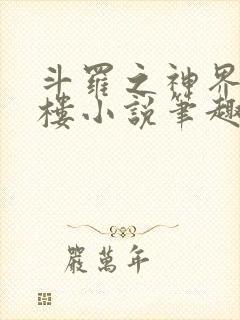 斗羅之神界
樓小說筆趣
嚴萬年